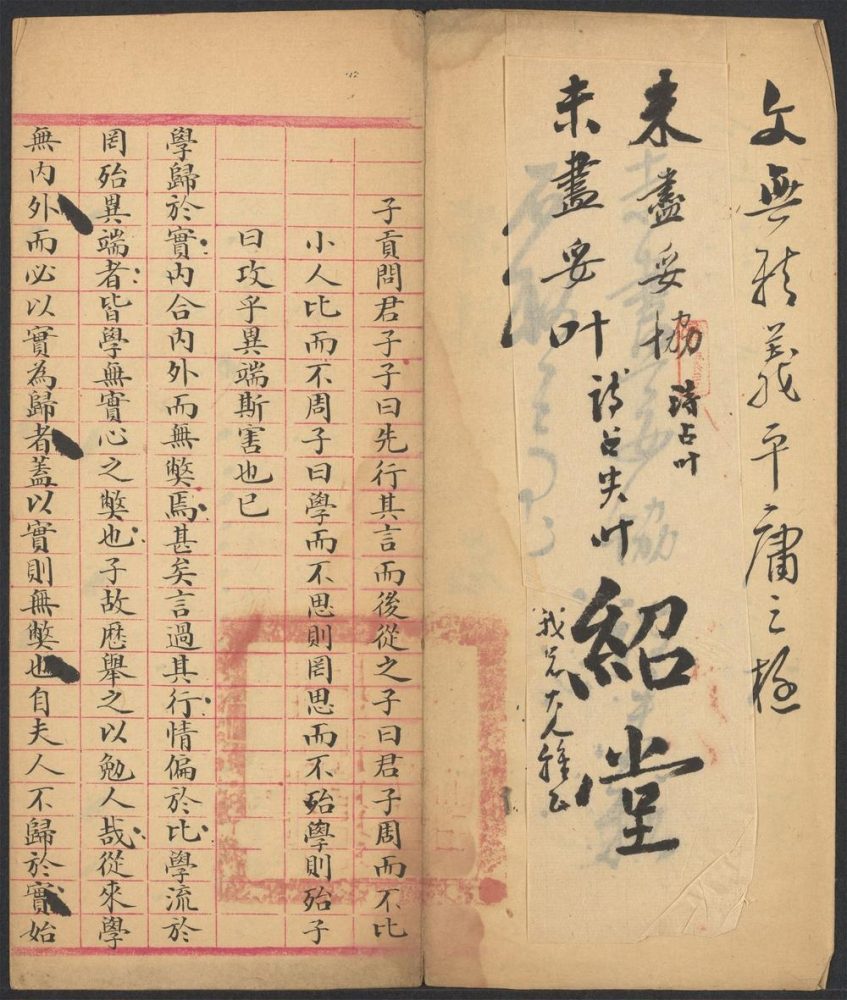 文無精義平庸之極
未盡妥協 詩占叶
未盡妥叶 詩占失叶
紹堂
子貢問君子子曰先行其言而後從之子曰君子周而不比
小人比而不周子曰學而不思則罔思而不殆學則殆子
曰攻乎異端斯害也已
學歸於實內合內外而無獘焉甚矣言過其行情偏於比學流於
罔殆異端者皆學無實心之獘也子故歷舉之以勉人哉從來學
無內外而必以實為歸者蓋以實則無獘也自夫人不歸於實始